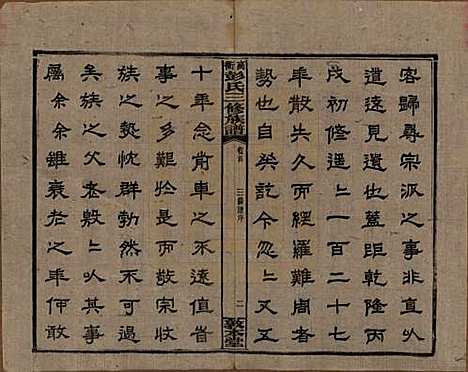 客歸尋宗派之事非能
遺遠見遺也蓋距乾隆丙
戌初修遥〻一百二十七
年散久而經羅難周者
勢也自癸訖今忽〻又五
萬衡彭氏三修族譜
卷首
三修譜序
二
敦本堂
十年念前車之不遠值省
事之多艱於是而敬宗收
族之懿忱群勃然不可遏
矣族之父老殷〻以其事
屬余余雖衰老之年何敢